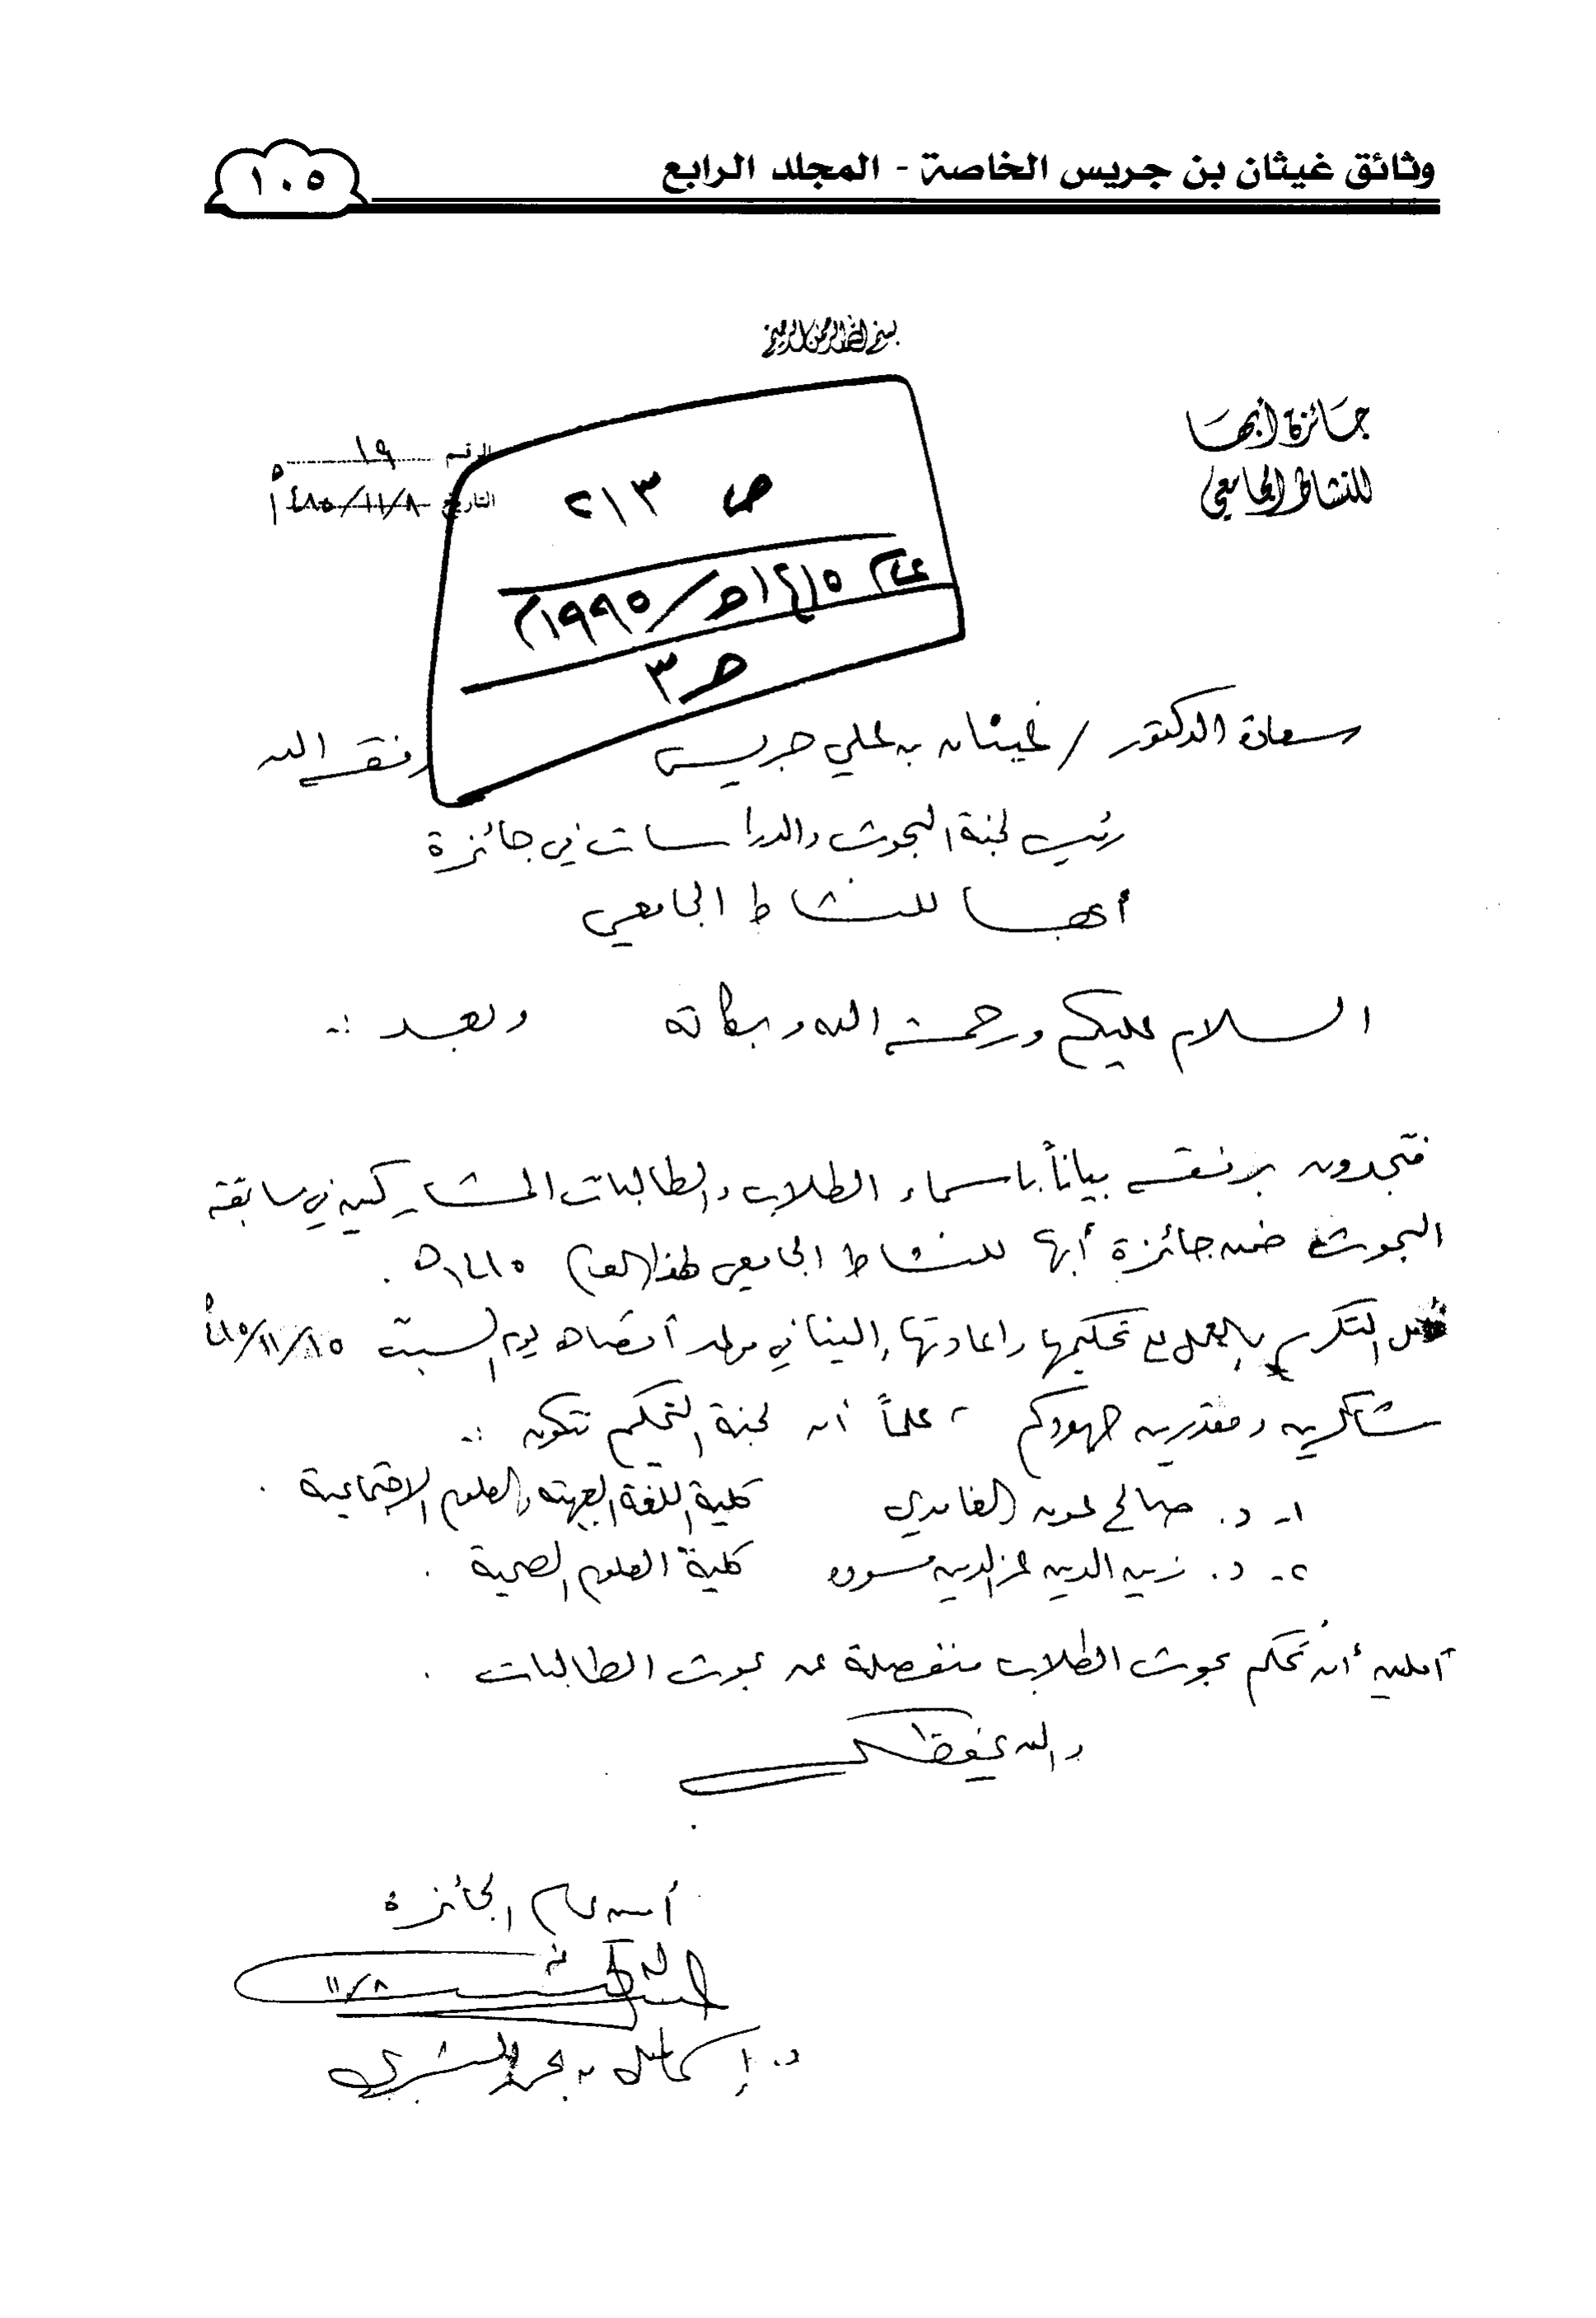 وثائق غيثان بن جريس الخاصة - المجلد الرابع
١٠٥
بسم الله الرحمن الرحيم
جائزة أبها
للنشاط الجامعي
الرقم ١٩
التاريخ ٨/١١/١٤١٥هـ
ص ٢١٣
عام ١٤١٥هـ/١٩٩٥م
حـ٣
سعادة الدكتور / غيثان بن علي جريس وفقه الله
رئيس لجنة البحوث والدراسات في جائزة
أبها للنشاط الجامعي
السلام عليكم ورحمة الله وبركاته وبعد :-
فتجدون برفقه بياناً بأسماء الطلاب والطالبات المشاركين في مسابقة
البحوث ضمن جائزة أبها للنشاط الجامعي لهذا العام ١٤١٥هـ .
التكرم بالعمل على تحكيمها وإعادتها إلينا في موعد أقصاه يوم السبت ١٥/١١/١٤١٥هـ
شاكرين ومقدرين جهودكم ، علماً أن لجنة التحكيم تتكون :-
١- د. صالح عون الغامدي كلية اللغة العربية والعلوم الاجتماعية .
٢- د. زين الدين عز الدين كلية العلوم الصحية .
آملين أن تحكم بحوث الطلاب منفصلة عن بحوث الطالبات .
والله يحفظكم
أمين عام الجائزة
٨/١١
د. إسماعيل بن محمد البشري